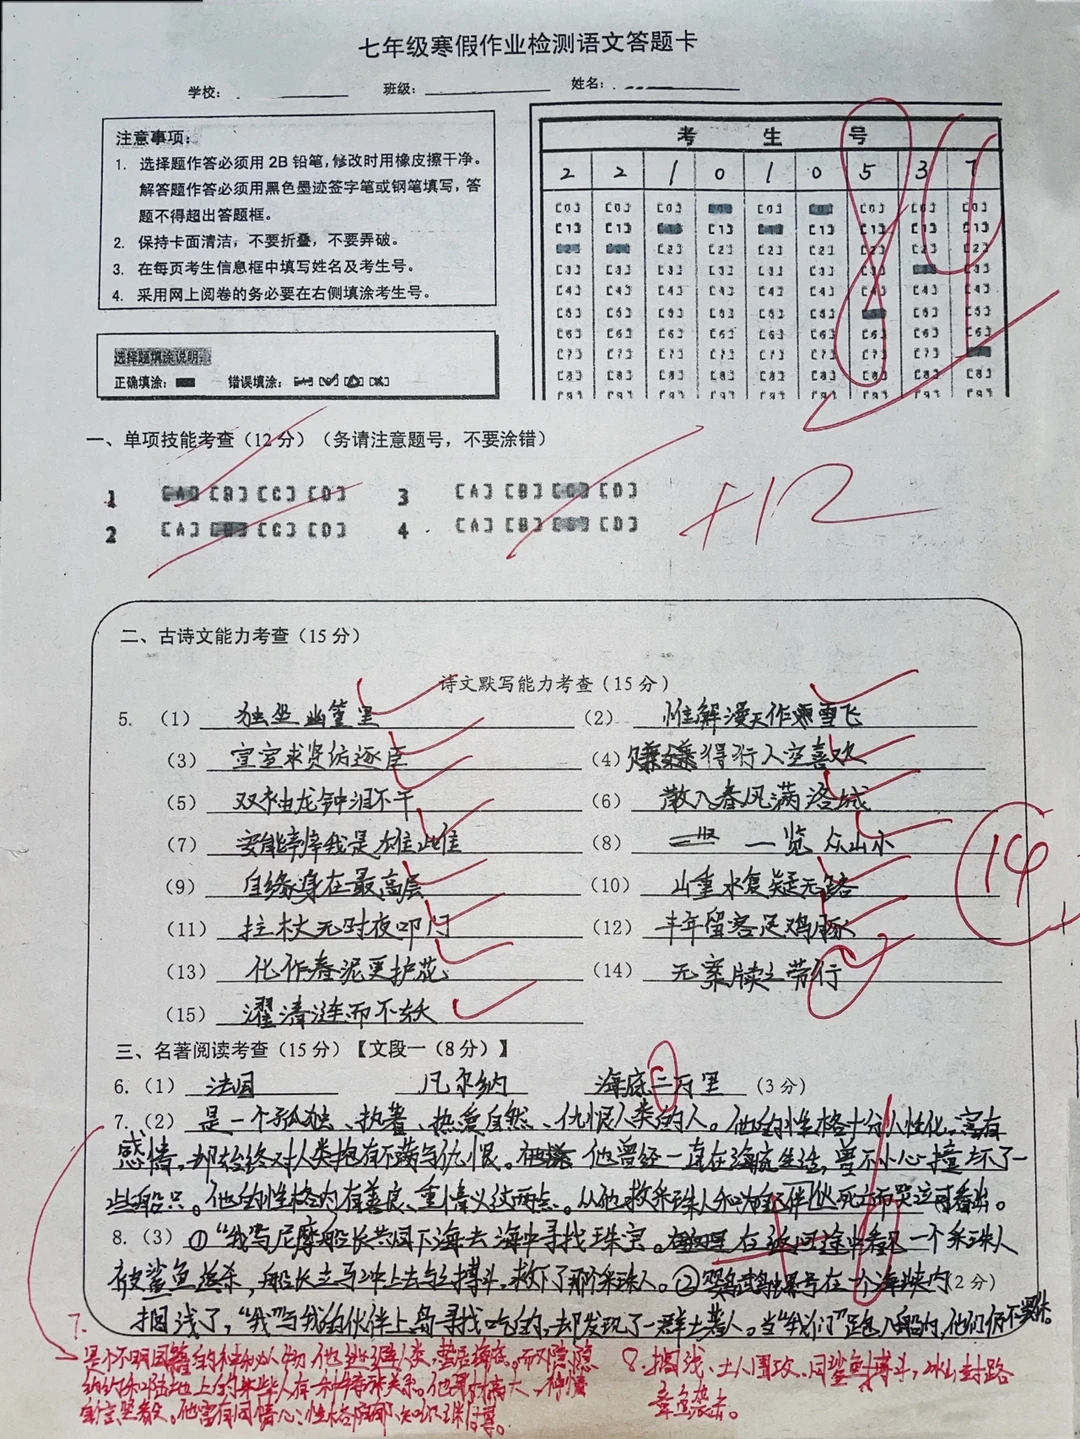 七年级寒假作业检测语文答题卡
学校： 班级： 姓名：
注意事项：
1. 选择题作答必须用 2B 铅笔，修改时用橡皮擦干净。
解答题作答必须用黑色墨迹签字笔或钢笔填写，答
题不得超出答题框。
2. 保持卡面清洁，不要折叠，不要弄破。
3. 在每页考生信息框中填写姓名及考生号。
4. 采用网上阅卷的务必要在右侧填涂考生号。
选择题填涂说明：
正确填涂： 错误填涂：
考 生 号
2 2 1 0 1 0 5 3 7
[0] [0] [0] [0] [0] [0] [0] [0] [0]
[1] [1] [1] [1] [1] [1] [1] [1] [1]
[2] [2] [2] [2] [2] [2] [2] [2] [2]
[3] [3] [3] [3] [3] [3] [3] [3] [3]
[4] [4] [4] [4] [4] [4] [4] [4] [4]
[5] [5] [5] [5] [5] [5] [5] [5] [5]
[6] [6] [6] [6] [6] [6] [6] [6] [6]
[7] [7] [7] [7] [7] [7] [7] [7] [7]
[8] [8] [8] [8] [8] [8] [8] [8] [8]
[9] [9] [9] [9] [9] [9] [9] [9] [9]
一、单项技能考查（12 分）（务请注意题号，不要涂错）
1 [A] [B] [C] [D] 3 [A] [B] [C] [D]
2 [A] [B] [C] [D] 4 [A] [B] [C] [D]
+12
二、古诗文能力考查（15 分）
诗文默写能力考查（15 分）
5. （1）独坐幽篁里 （2）惟解漫天作雪飞
（3）宣室求贤访逐臣 （4）赚得行人空喜欢
（5）双袖龙钟泪不干 （6）散入春风满洛城
（7）安能辨我是雄雌 （8）一览众山小
（9）自缘身在最高层 （10）山重水复疑无路
（11）拄杖无时夜叩门 （12）丰年留客足鸡豚
（13）化作春泥更护花 （14）无案牍之劳行
（15）濯清涟而不妖
14
三、名著阅读考查（15 分）【文段一（8 分）】
6.（1）法国 凡尔纳 海底二万里 （3 分）
7.（2）是一个孤独、执着、热爱自然、仇恨人类的人。他的性格十分人性化，富有
感情，却始终对人类抱有不满与仇恨。他曾经一直在海底生活，曾不小心撞坏了一
些船只。他的性格内有善良、重情义这两点。从他救采珠人和为伙伴死亡而哭泣可看出。
8.（3）①“我”与尼摩船长共同下海去海中寻找珠宝。在返回途中看见一个采珠人
被鲨鱼追杀，船长立马冲上去与之搏斗，救下了那个采珠人。②鹦鹉螺号在一个海峡内（2 分）
搁浅了，“我”与我的伙伴上岛寻找吃的，却发现了一群土著人。当“我们”跑入船内，他们仍不罢休。
7.
是个不明国籍的神秘人物，他逃避人类，蛰居海底。而又隐隐
约约和陆地上的某些人有一种特殊关系。他身材高大、神情
坚毅。他富有同情心；性格阴郁，知识渊博。
8. 搁浅、土人围攻、同鲨鱼搏斗，冰山封路
章鱼袭击。